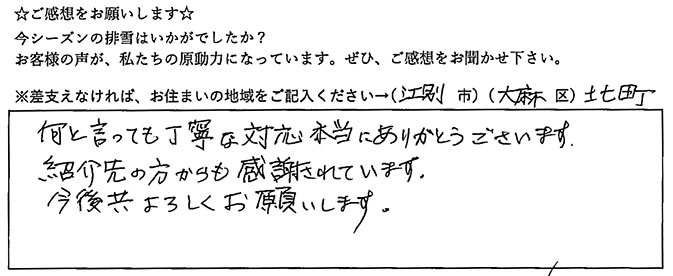 ☆ご感想をお願いします☆
今シーズンの排雪はいかがでしたか？
お客様の声が、私たちの原動力になっています。ぜひ、ご感想をお聞かせ下さい。
※差支えなければ、お住まいの地域をご記入ください→（江別 市）（大麻 区）
何と言っても丁寧な対応本当にありがとうございます.
紹介先の方からも感謝されています.
今後共よろしくお願いします。